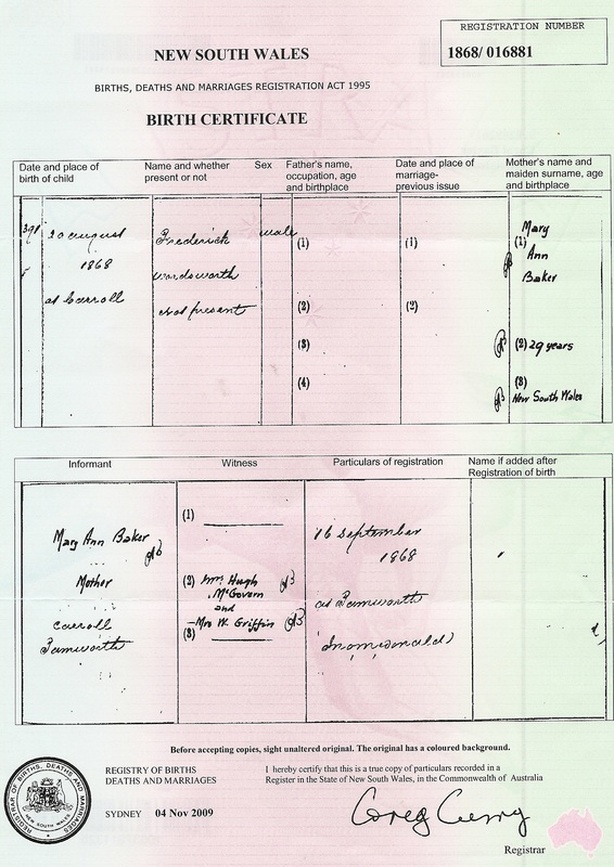 REGISTRATION NUMBER
1868/ 016881
NEW SOUTH WALES
BIRTHS, DEATHS AND MARRIAGES REGISTRATION ACT 1995
BIRTH CERTIFICATE
Date and place of
birth of child
Name and whether
present or not
Sex
Father's name,
occupation, age
and birthplace
Date and place of
marriage-
previous issue
Mother's name and
maiden surname, age
and birthplace
391
20 August
1868
at Carroll
Frederick
Wardsworth
Not present
male
(1)
(2)
(3)
(4)
(1)
(2)
Mary
(1)
Ann
Baker
(2) 29 years
(3)
New South Wales
Informant
Witness
Particulars of registration
Name if added after
Registration of birth
Mary Ann Baker
Mother
Carroll
Tamworth
(1)
(2) Mrs Hugh
McGovern
and
Mrs W. Griffin
(3)
16 September
1868
at Tamworth
Before accepting copies, sight unaltered original. The original has a coloured background.
REGISTRAR OF BIRTHS, DEATHS AND MARRIAGES
NEW SOUTH WALES
REGISTRY OF BIRTHS
DEATHS AND MARRIAGES
SYDNEY 04 Nov 2009
I hereby certify that this is a true copy of particulars recorded in a
Register in the State of New South Wales, in the Commonwealth of Australia
Greg Curry
Registrar